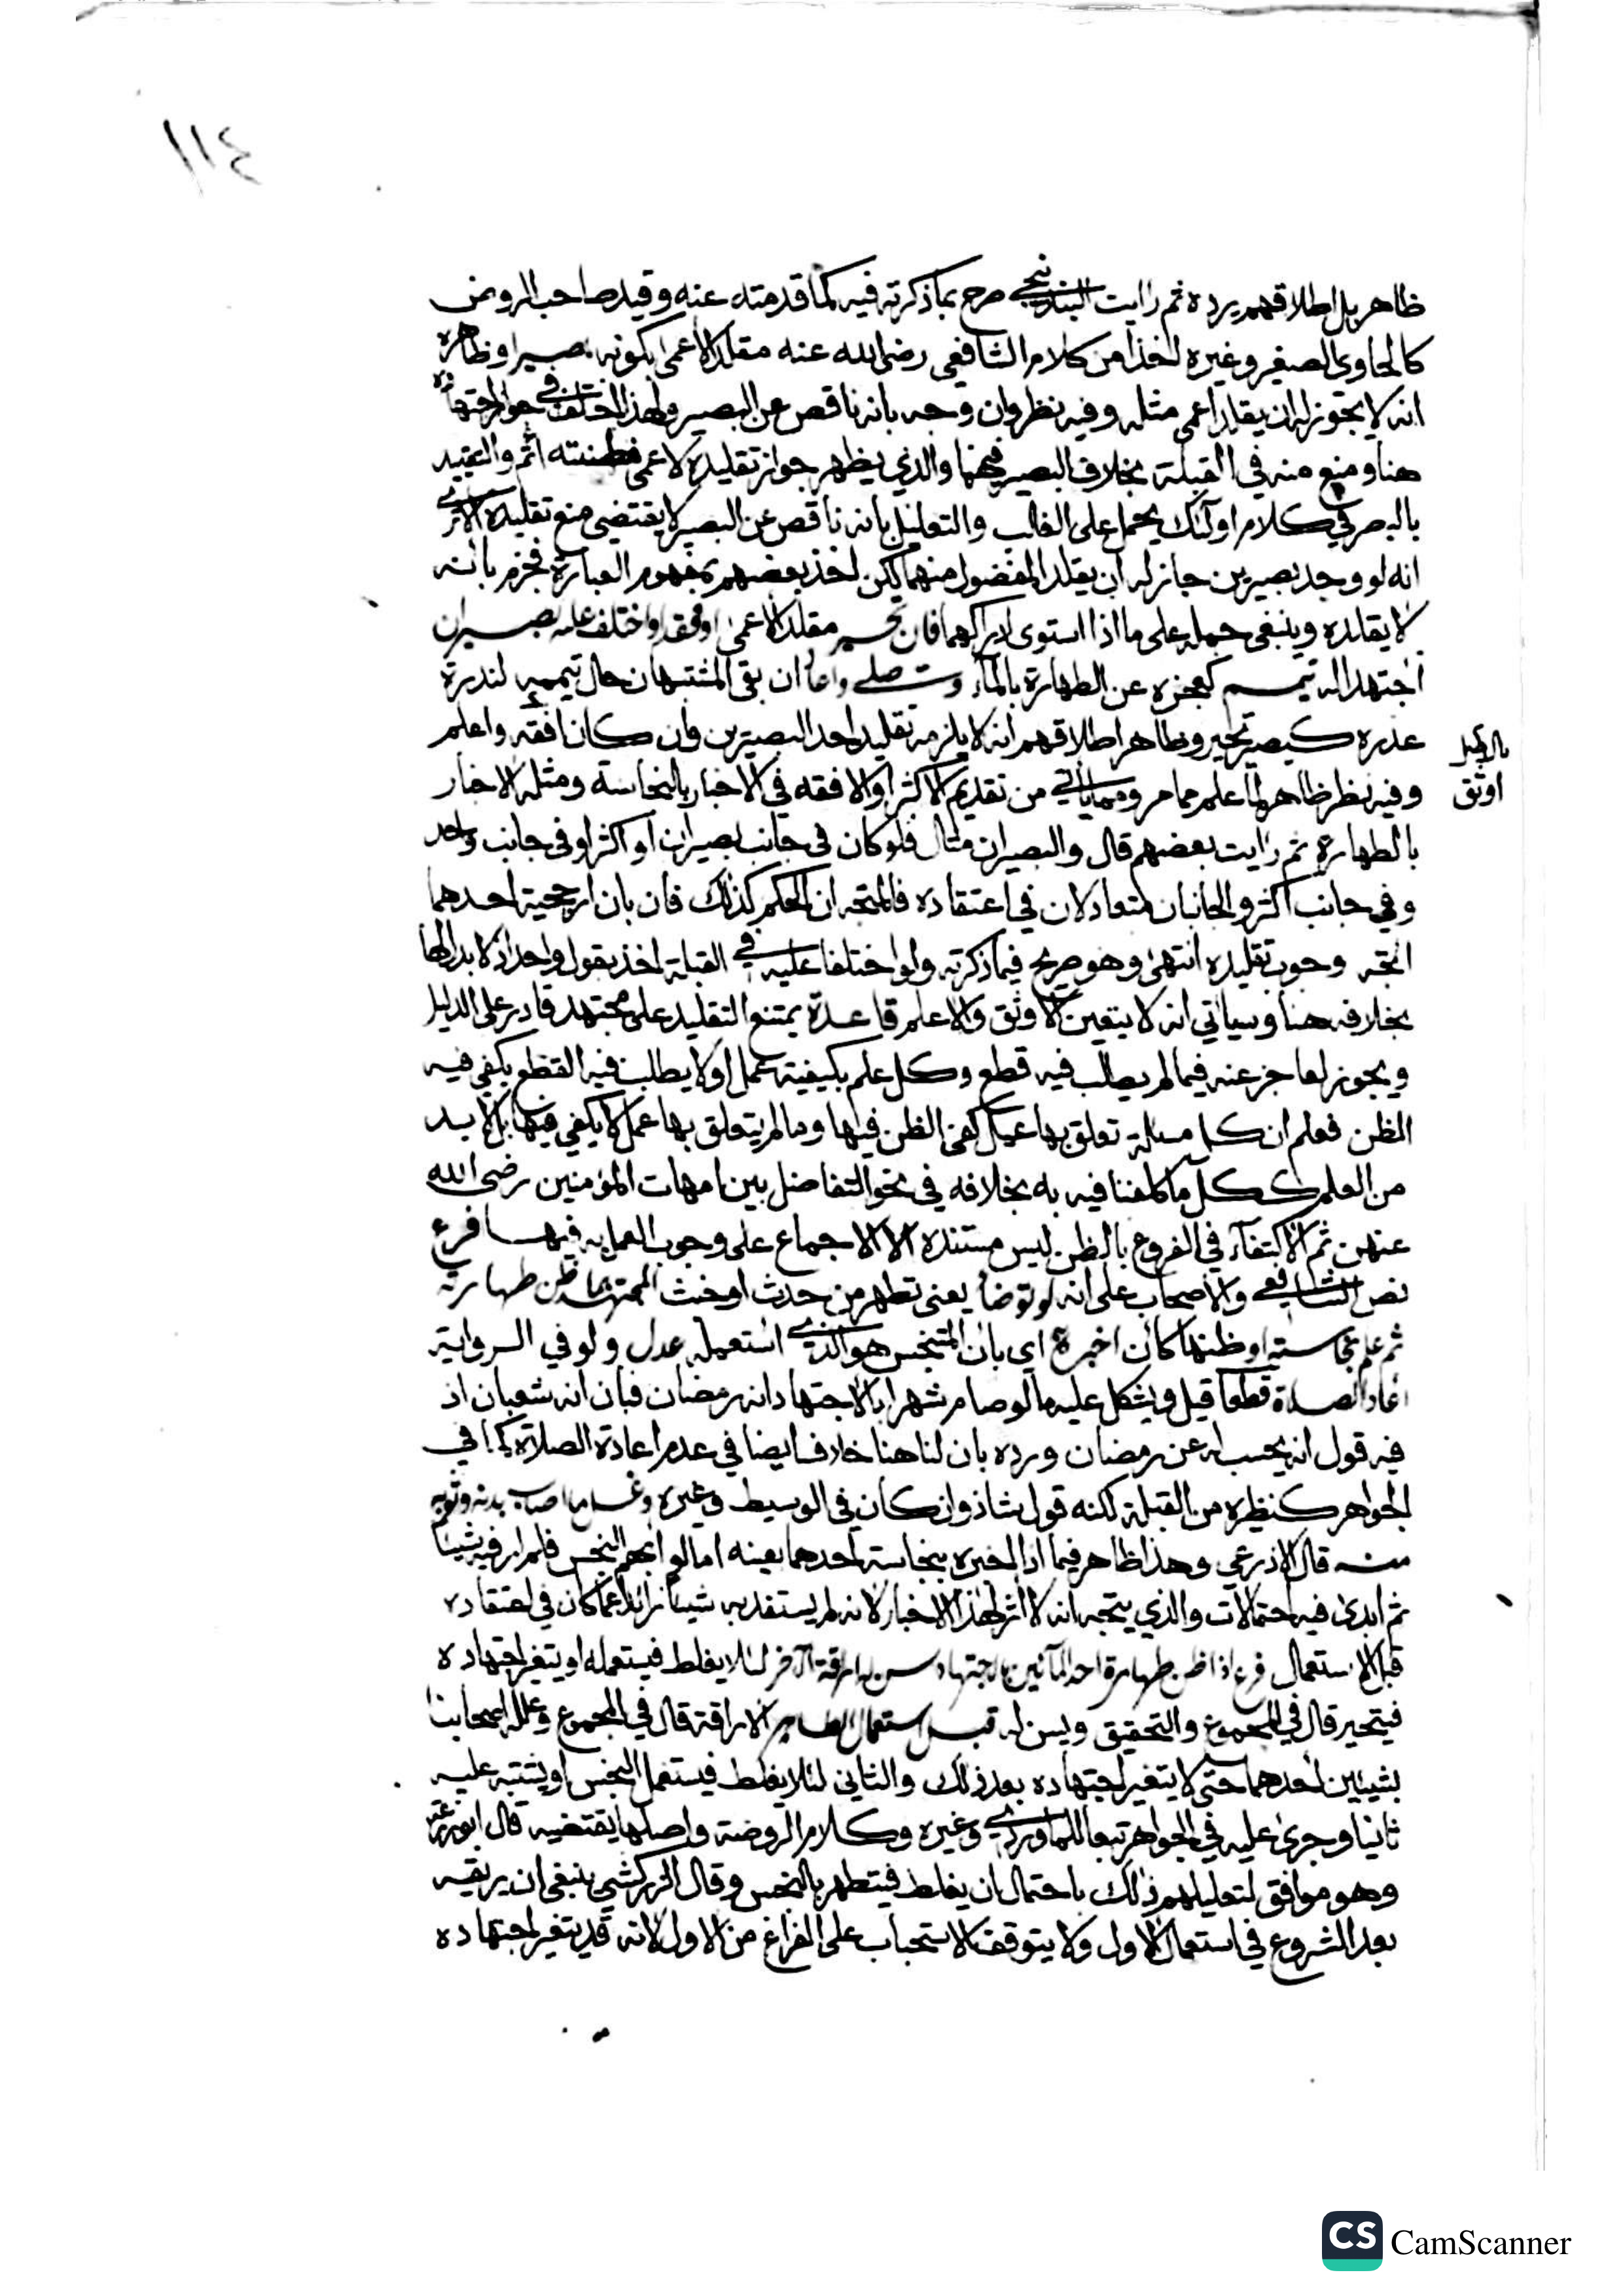 ١١٤
ظاهر بل اطلاقهم يرده ثم رايت البندنيجي صرح بما ذكرته فيه كما قدمته عنه وقيد صاحب الروض
كالحاوي الصغير وغيره اخذا من كلام الشافعي رضي الله عنه مقلد الاعمى بكونه بصيرا وظاهره
انه لا يجوز له ان يقلد اعمى مثله وفيه نظر وان وجه بانه ناقص عن البصير ولهذا اختلف في جواز اجتهاده
هنا ومنع منه في القبلة بخلاف البصير فيهما والذي يظهر جواز تقليده لاعمى اتم والتقييد
بالبصر في كلام اولئك يحمل على الغالب والتعليل بانه ناقص عن البصير لا يقتضي منع تقليده الا ترى
انه لو وجد بصيرين جاز له ان يقلد المفضول منهما لكن اخذ بعضهم بمفهوم العبارة فجزم بانه
لا يقلده وينبغي حمله على ما اذا استوى ادراكهما فان تحير مقلد الاعمى او فقد او اختلف عليه بصيران
اجتهدا له تيمم كعجزه عن الطهارة بالماء و صلى واعاد ان بقي المشتبهان حال تيممه لندرة
عذره كبصير تحير وظاهر اطلاقهم انه لا يلزمه تقليد احد البصيرين وان كان افقه واعلم
بالدليل
اوثق
وفيه نظر ظاهر لما علم مما مر ومما ياتي من تقديم الاكثر او الافقه في الاخبار بالنجاسة ومثله الاخبار
بالطهارة ثم رايت بعضهم قال والبصيران مثال فلو كان في جانب بصيران او اكثر او في جانب واحد
وفي جانب اكثر والجانبان متعادلان في اعتقاده فالمتجه ان الحكم كذلك فان بان ارجحية احدهما
اتجه وجوب تقليده انتهى وهو صريح فيما ذكرته ولو اختلفا عليه في القبلة اخذ بقول واحد اذ لا بدل لها
بخلافه هنا وسياتي انه لا يتعين الاوثق والاعلم قاعدة يمتنع التقليد على مجتهد قادر على الدليل
ويجوز لعاجز عنه فيما لم يطلب فيه قطع وكل علم بكيفية عمل او لا يطلب فيه القطع يكفي فيه
الظن فعلم ان كل مسئلة تعلق بها عمل كفى الظن فيها وما لم يتعلق بها عمل لا يكفي فيها بل لا بد
من العلم ككل ما كلفنا فيه به بخلافه في نحو التفاضل بين امهات المؤمنين رضي الله
عنهن ثم الاكتفاء في الفروع بالظن ليس مستنده الا الاجماع على وجوب العمل به فيها فرع
نص الشافعي والاصحاب على انه لو توضا يعني تطهر من حدث او خبث بما ظن طهارته
ثم علم نجاسته او ظنها كان اخبره اي بان المتنجس هو الذي استعمله عدل ولو في الرواية
اعاد الصلاة قطعا قيل ويشكل عليه ما لو صام شهرا بالاجتهاد انه رمضان فبان انه شعبان اذ
فيه قول انه يحسب له عن رمضان ورده بان لنا هنا خلافا ايضا في عدم اعادة الصلاة كما في
الجواهر كنظيره من القبلة لكنه قول شاذ وان كان في الوسيط وغيره وغسل ما اصاب بدنه وثوبه
منه قال الاذرعي وهذا ظاهر فيما اذا اخبره بنجاسة احدهما بعينه اما لو ابهم النجس فلم ار فيه شيئا
ثم ابدى فيه احتمالات والذي يتجه انه لا اثر لهذا الاخبار لانه لم يستفد به شيئا زائدا عما كان في اعتقاده
قبل الاستعمال فرع اذا ظن طهارة احد المائين بالاجتهاد سن له اراقة الاخر لئلا يغلط فيستعمله او يتغير اجتهاده
فيتحير قال في المجموع والتحقيق ويسن له قبل استعمال الطاهر الاراقة قال في المجموع وعلله اصحابنا
بشيئين احدهما حتى لا يتغير اجتهاده بعد ذلك والثاني لئلا يغلط فيستعمل النجس او يشتبه عليه
ثانيا وجرى عليه في الجواهر تبعا للماوردي وغيره وكلام الروضة واصلها يقتضيه قال ابو زرعة
وهو موافق لتعليلهم ذلك باحتمال ان يغلط فيتطهر بالنجس وقال الزركشي ينبغي ان يريقه
بعد الشروع في استعمال الاول ولا يتوقف الاستحباب على الفراغ من الاول لانه قد يتغير اجتهاده
CS CamScanner